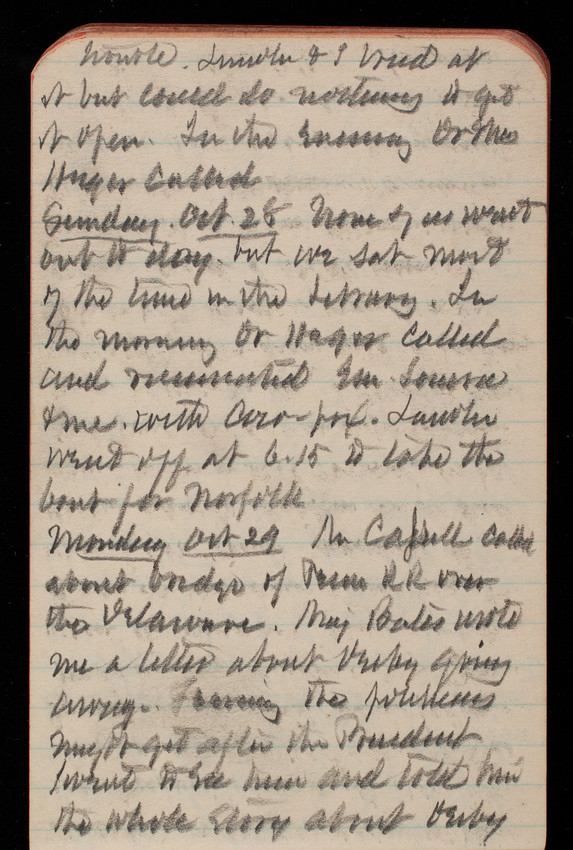 trouble. Lincoln & I tried at
it but could do nothing to get
it open. In the Evening Dr & Mrs
Hager called
Sunday. Oct. 28 None of us went
out to day. but we sat most
of the time in the Library. In
the morning Dr Hager called
and vaccinated Em Louise
& me. with cow-pox. Lincoln
went off at 6.15 to take the
boat for Norfolk
Monday Oct 29 Mr called
about bridge of Penn RR over
the Delaware. Maj Bates wrote
me a letter about Derby going
away. Fearing the politicians
might get after the President
I went to see him and told him
the whole story about Derby